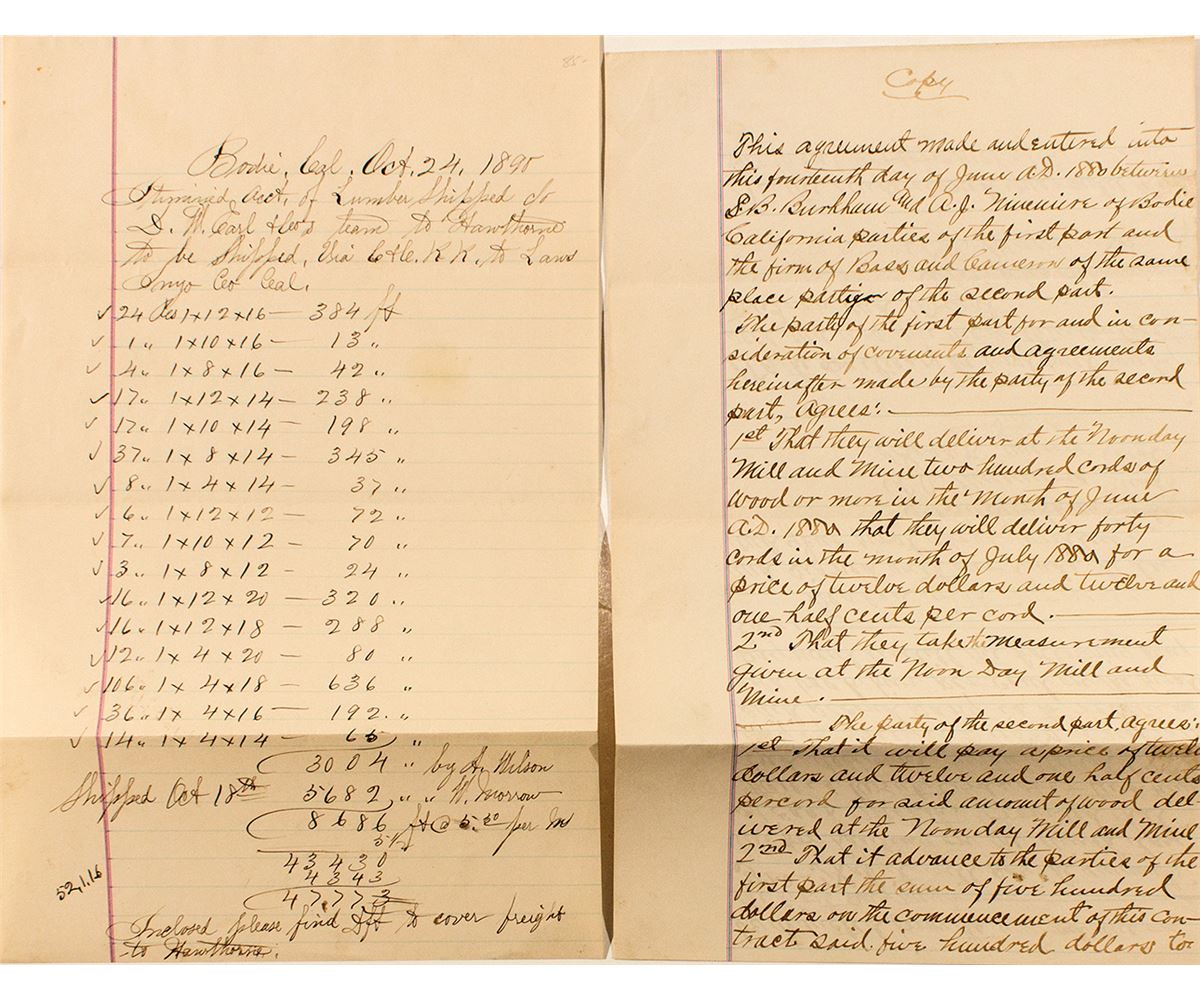 85-
Bodie, Cal, Oct, 24, 1890
Itimized acct, of Lumber Shipped
D. W. Earl & Co's team to Hawthorne
to be Shipped, Via C & C. R.R. to Laws
Inyo Co. Cal.
✓ 24 Pcs 1x12x16 — 384 ft
✓ 1 " 1x10x16 — 13 "
✓ 4 " 1x8x16 — 42 "
✓ 17 " 1x12x14 — 238 "
✓ 17 " 1x10x14 — 198 "
✓ 37 " 1x8x14 — 345 "
✓ 8 " 1x4x14 — 37 "
✓ 6 " 1x12x12 — 72 "
✓ 7 " 1x10x12 — 70 "
✓ 3 " 1x8x12 — 24 "
✓ 16 " 1x12x20 — 320 "
✓ 16 " 1x12x18 — 288 "
✓ 12 " 1x4x20 — 80 "
✓ 106 " 1x4x18 — 636 "
✓ 36 " 1x4x16 — 192 "
✓ 14 " 1x4x14 — 65 "
3004 " by A, Wilson
Shipped Oct 18th 5682 " " W. Morrow
8686 ft @ 5.50 per M
5 1/2
43430
4343
52,1.16
47773
Inclosed please find dft to cover freight
to Hawthorne.
Copy
This agreement made and entered into
this fourteenth day of June A.D. 1880 between
S. B. Burkham and A. J. of Bodie
California parties of the first part and
the firm of Bass and Cameron of the same
place parties of the second part.
The party of the first part for and in con-
sideration of covenants and agreements
hereinafter made by the party of the second
part, agrees:
1st That they will deliver at the Noonday
Mill and Mine two hundred cords of
wood or more in the Month of June
A.D. 1880 that they will deliver forty
cords in the month of July 1880 for a
price of twelve dollars and twelve and
one half cents per cord.
2nd That they take the measurement
given at the Noon Day Mill and
Mine.
The party of the second part, agrees:
1st That it will pay a price of twelve
dollars and twelve and one half cents
per cord for said amount of wood del
ivered at the Noonday Mill and Mine
2nd That it advance to the parties of the
first part the sum of five hundred
dollars on the commencement of this con-
tract said five hundred dollars to